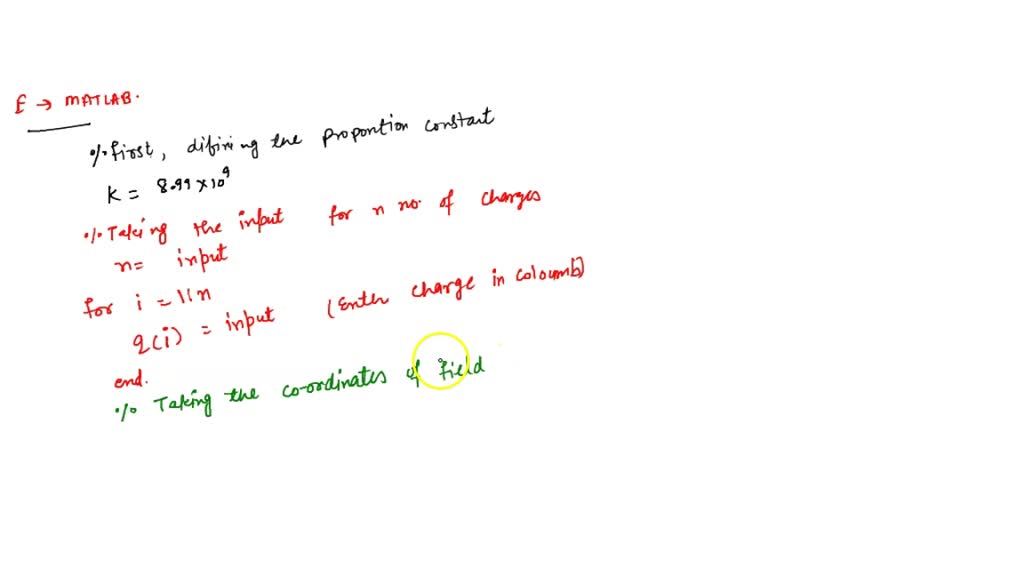 E → MATLAB.
% First, difining the proportion constant
K = 8.99 × 10⁹
% Taking the input for n no. of charges
n = input
for i = 1:n
q(i) = input (Enter charge in coloumb)
end.
% Taking the co-ordinates of field